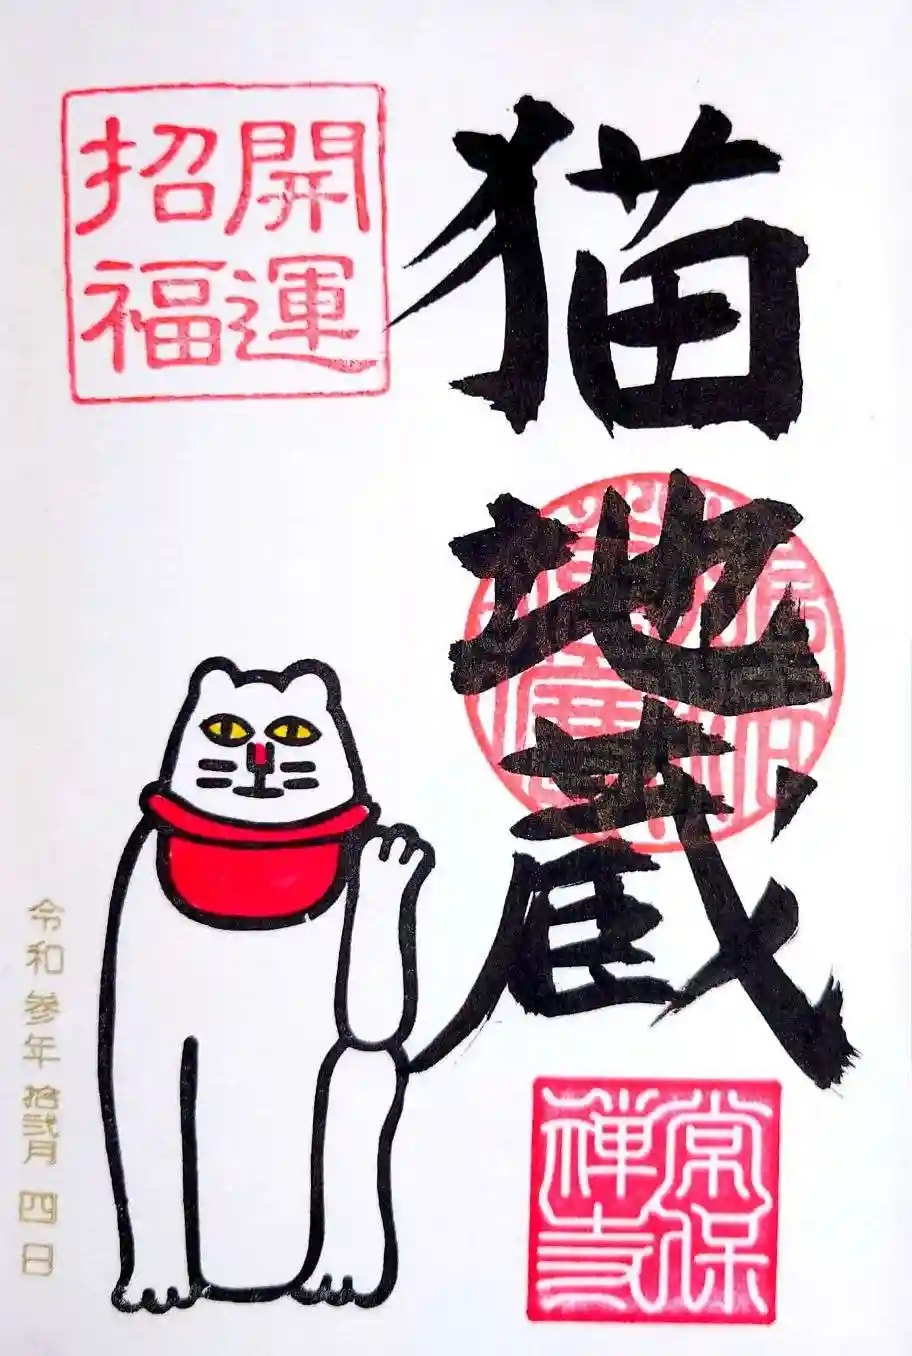 猫地蔵
開運
招福
常保
禅寺
令和参年拾弐月四日